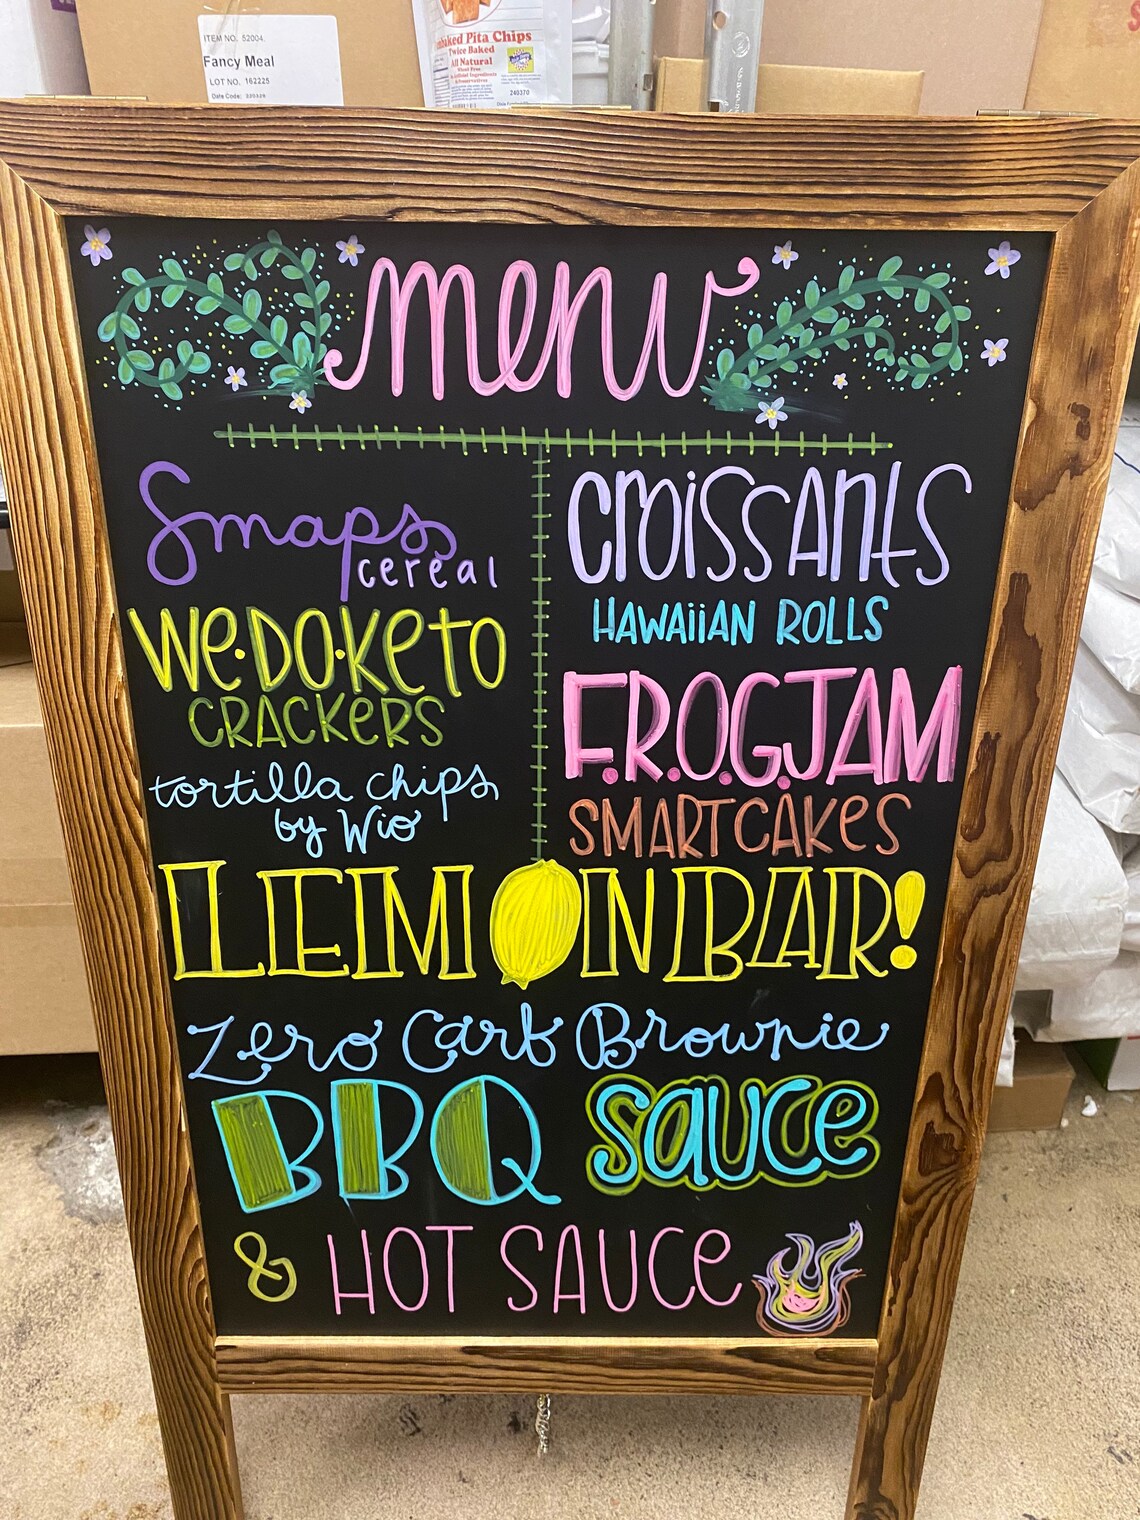 ITEM NO. 52004
Fancy Meal
LOT NO. 162225
Pita Chips
Twice Baked
All Natural
240370
menu
Smaps
cereal
WE·DO·KETO
CRACKERS
tortilla chips
by Wio
CROISSANTS
HAWAIIAN ROLLS
F.R.O.G.JAM
SMARTCAKES
LEMONBAR!
Zero Carb Brownie
BBQ Sauce
& HOT SAUCE